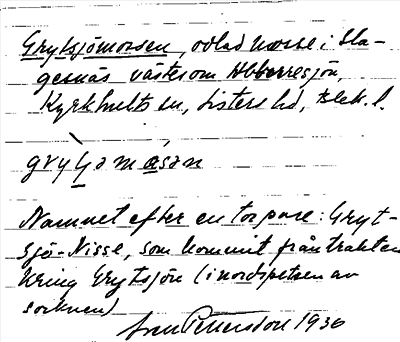 Grytsjömossen, odlad mosse i Sla-
gesnäs väster om Abborresjön,
Kyrkhults sn, Listers hd, Blek. l.
Namnet efter en torpare: Gryt-
sjö-Nisse, som kommit från trakten
kring Grytsjön (i nordspetsen av
socknen)
Sven Pettersson 1936